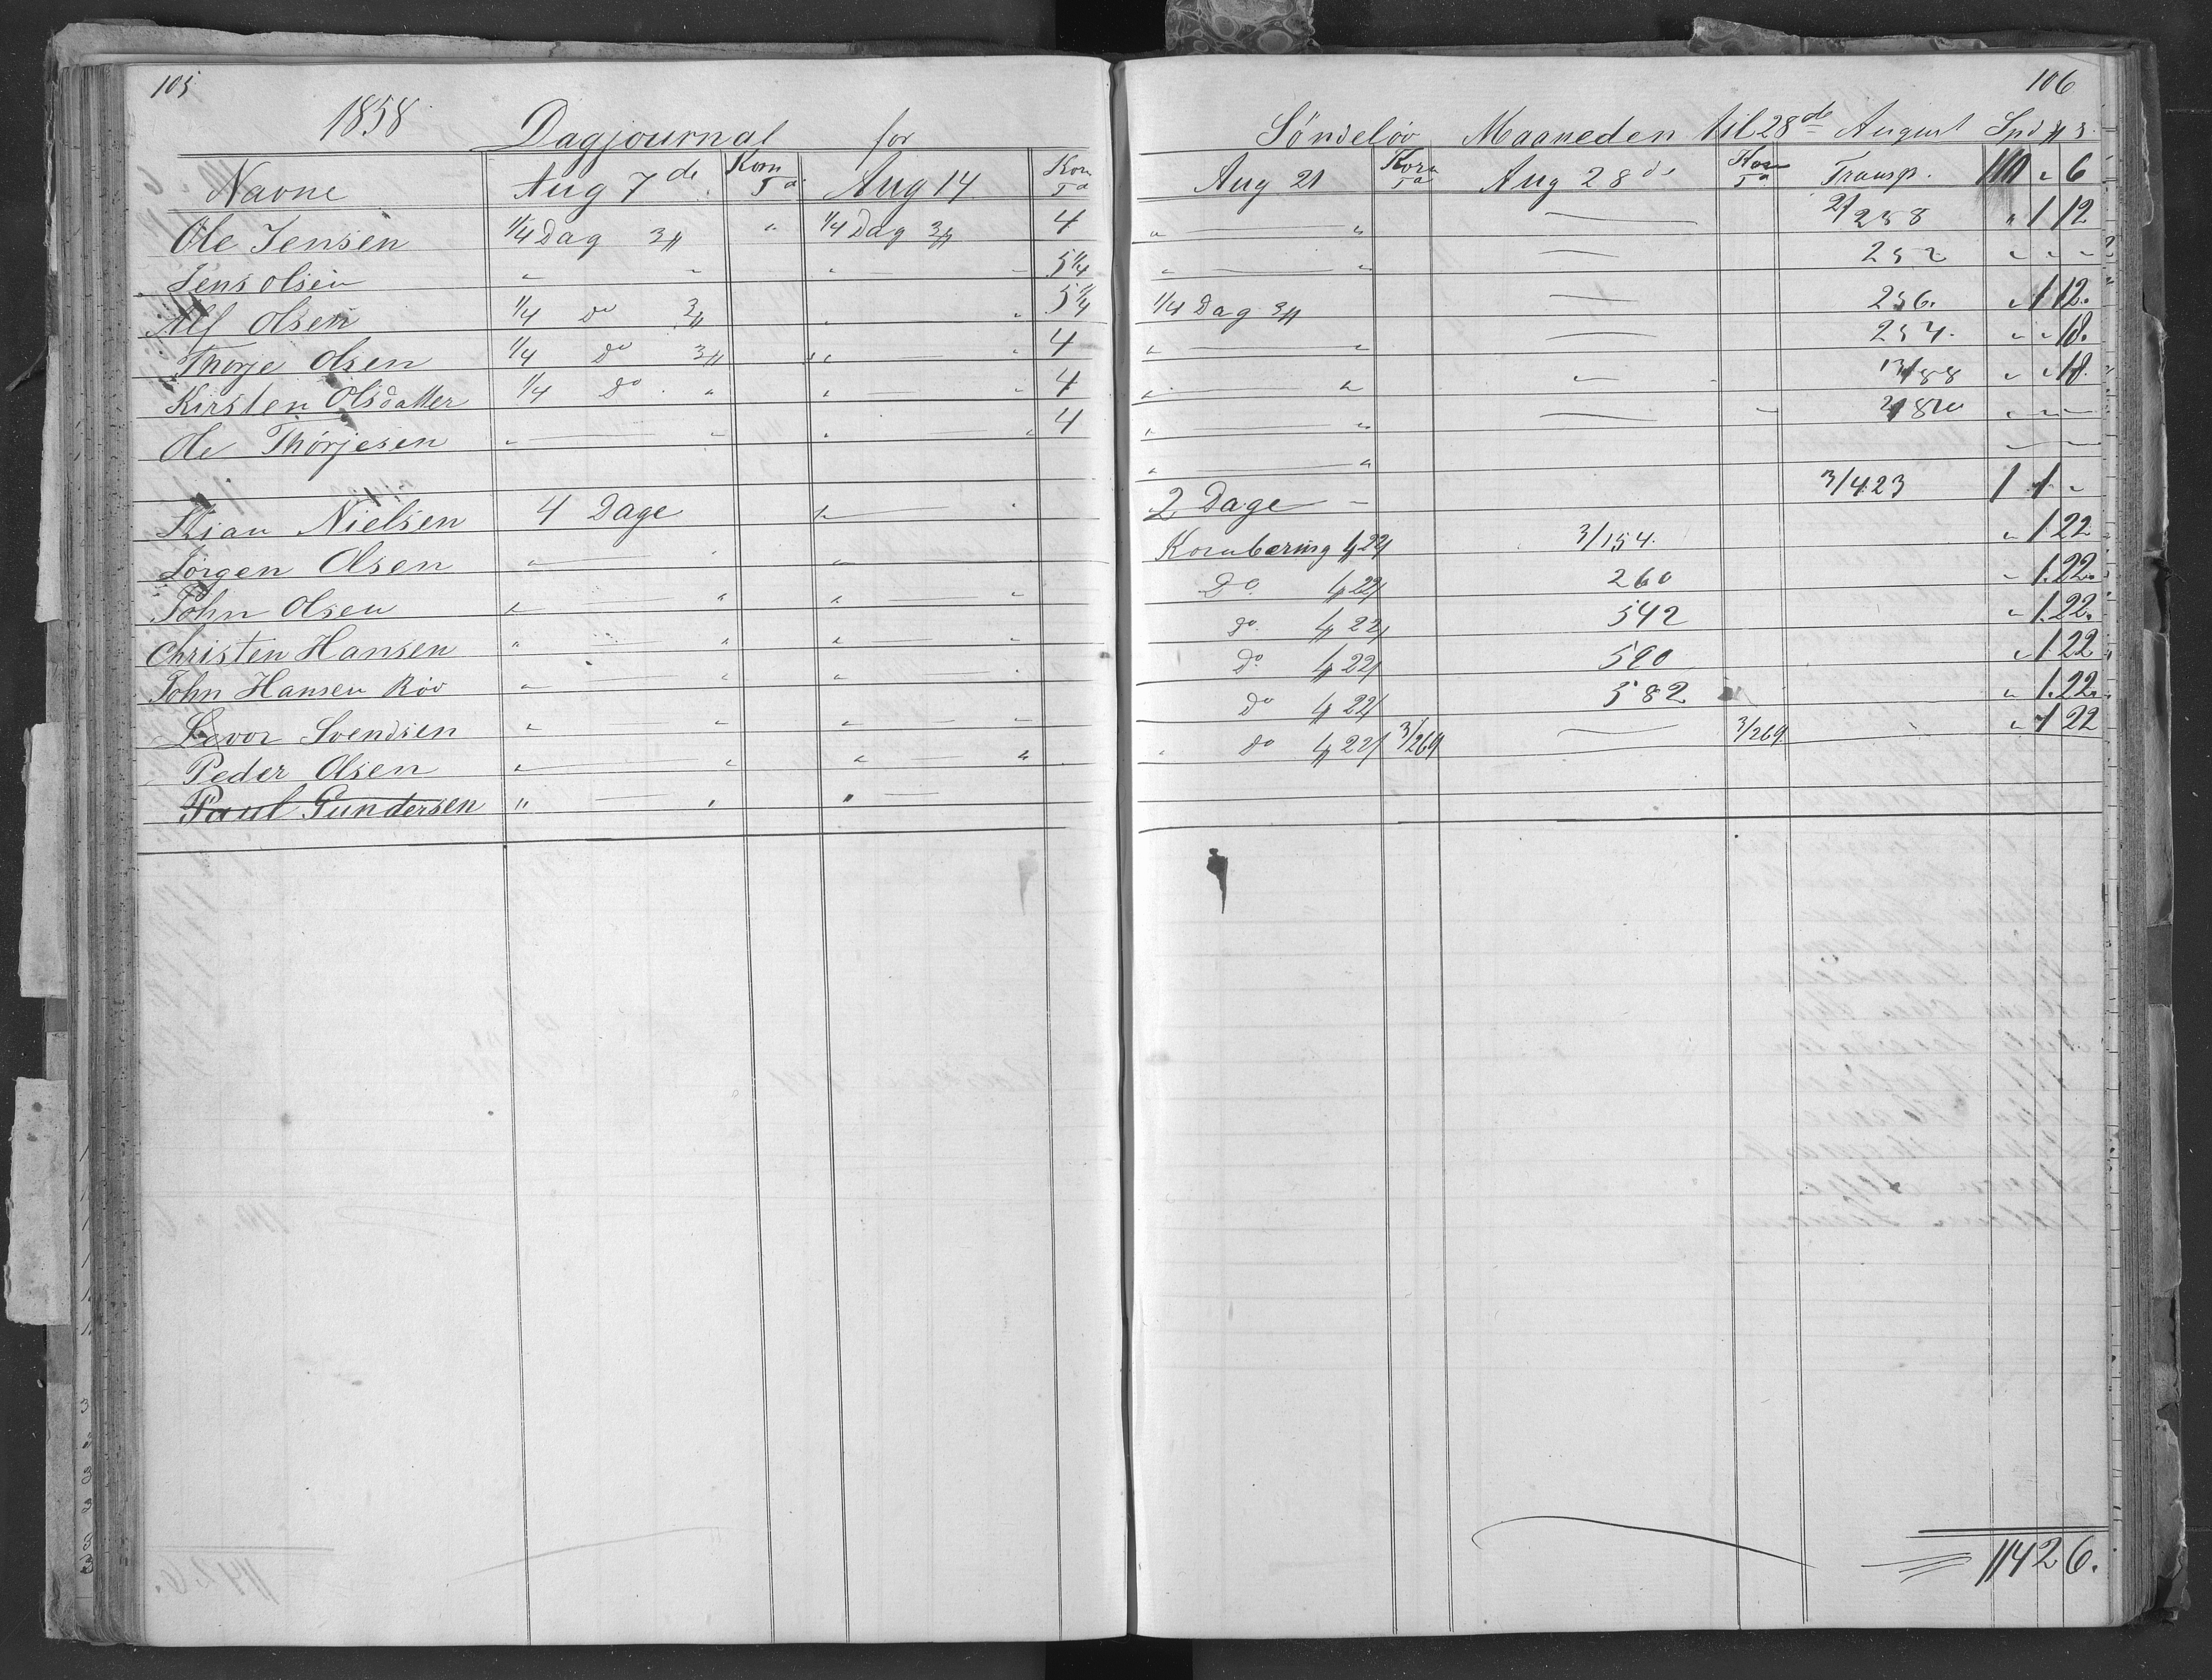 105
1858 Dagjournal for
Navne Aug 7de Korn Td Aug 14 Korn Td
Ole Jensen 1/4 Dag 3 " 1/4 Dag 3 4
Jens Olsen " — " " — " 5 1/4
Alf Olsen 1/4 Do 3 " — " 5 1/4
Thorje Olsen 1/4 Do 3 " — " 4
Kirsten Olsdatter 1/4 Do " " — " 4
Ole Thorjesen " — " " — " 4
Kian Nielsen 4 Dage " —
Jörgen Olsen " — " —
John Olsen " — " " — "
Christen Hansen " — " " — "
John Hansen Röv " — " " —
Levor Svendsen " — " " — "
Peder Olsen " — " " — "
Paul Gundersen " — " " —
106
Söndeløv Maaneden til 28de August Spd
Aug 21 Korn Td Aug 28de Korn Td Transp. 110 " 6
" — " — 2/258 " 1 12
" — " — 252 " " "
1/4 Dag 3 — 256. " 1 12.
" — " — 254. " " 18.
" — " — 13/88 " " 18.
" — " — " — —
" — "
2 Dage — 3/423 1 1 "
Kornbæring 22 3/154. " 1 22
Do. 22 260 " 1.22.
Do. 22 542 " 1.22.
Do. 22 590 " 1 22
Do 22 582 " 1.22.
" Do 22 3/269 — 3/269 " 1 22
114 2 6.